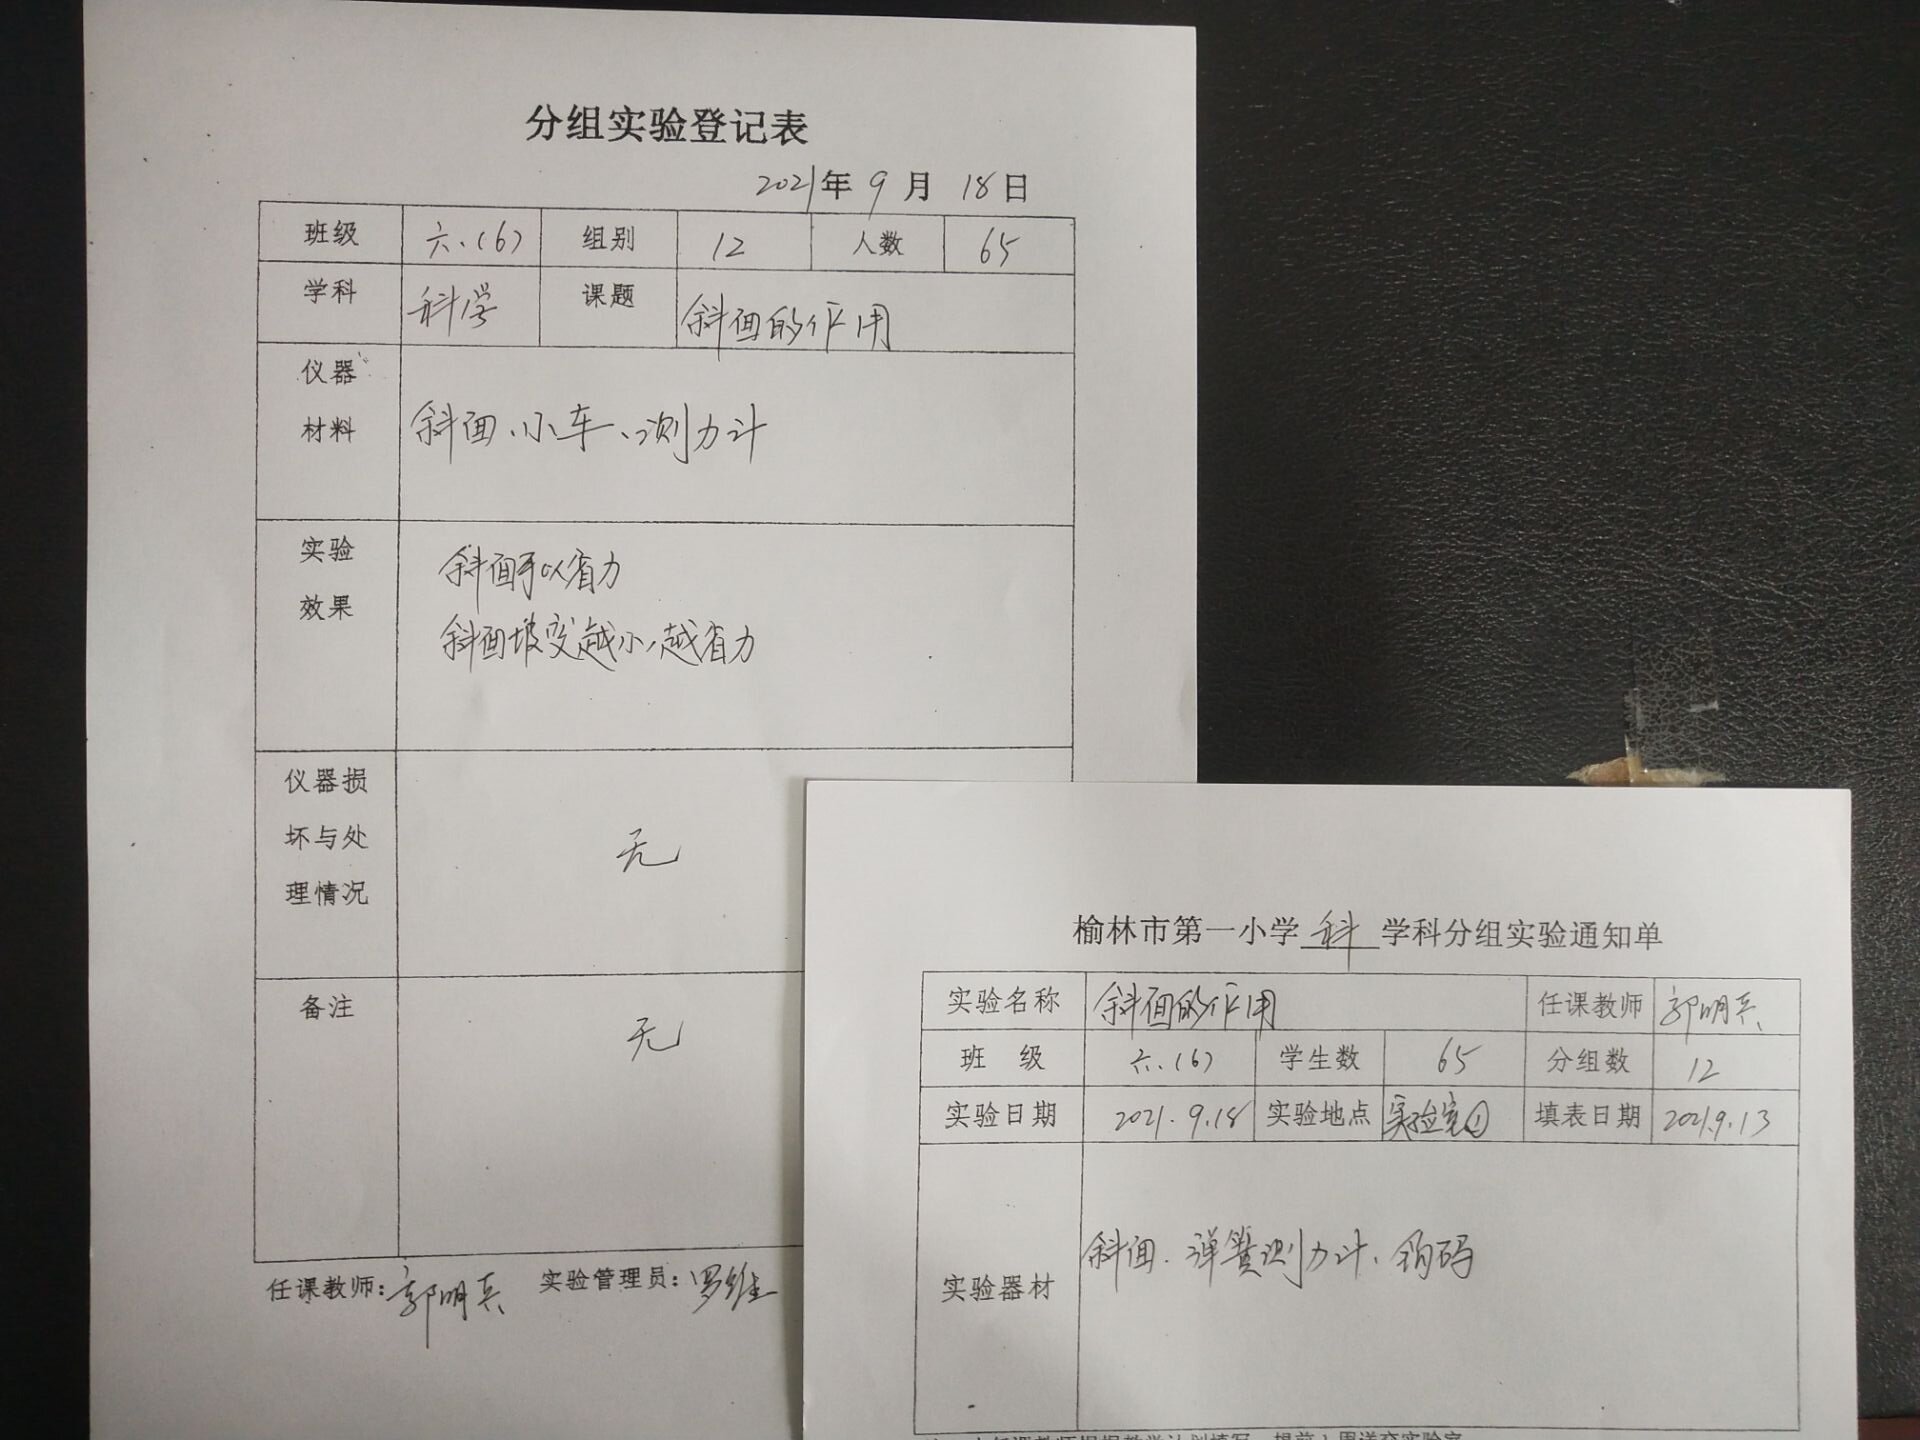 分组实验登记表
2021年 9 月 18日
班级 六.(6) 组别 12 人数 65
学科 科学 课题 斜面的作用
仪器
材料
斜面、小车、测力计
实验
效果
斜面可以省力
斜面坡度越小,越省力
仪器损
坏与处
理情况
无
备注
无
任课教师:郭明兵 实验管理员:罗维
榆林市第一小学 科 学科分组实验通知单
实验名称 斜面的作用 任课教师 郭明兵
班 级 六.(6) 学生数 65 分组数 12
实验日期 2021.9.18 实验地点 实验室① 填表日期 2021.9.13
实验器材 斜面、弹簧测力计、钩码